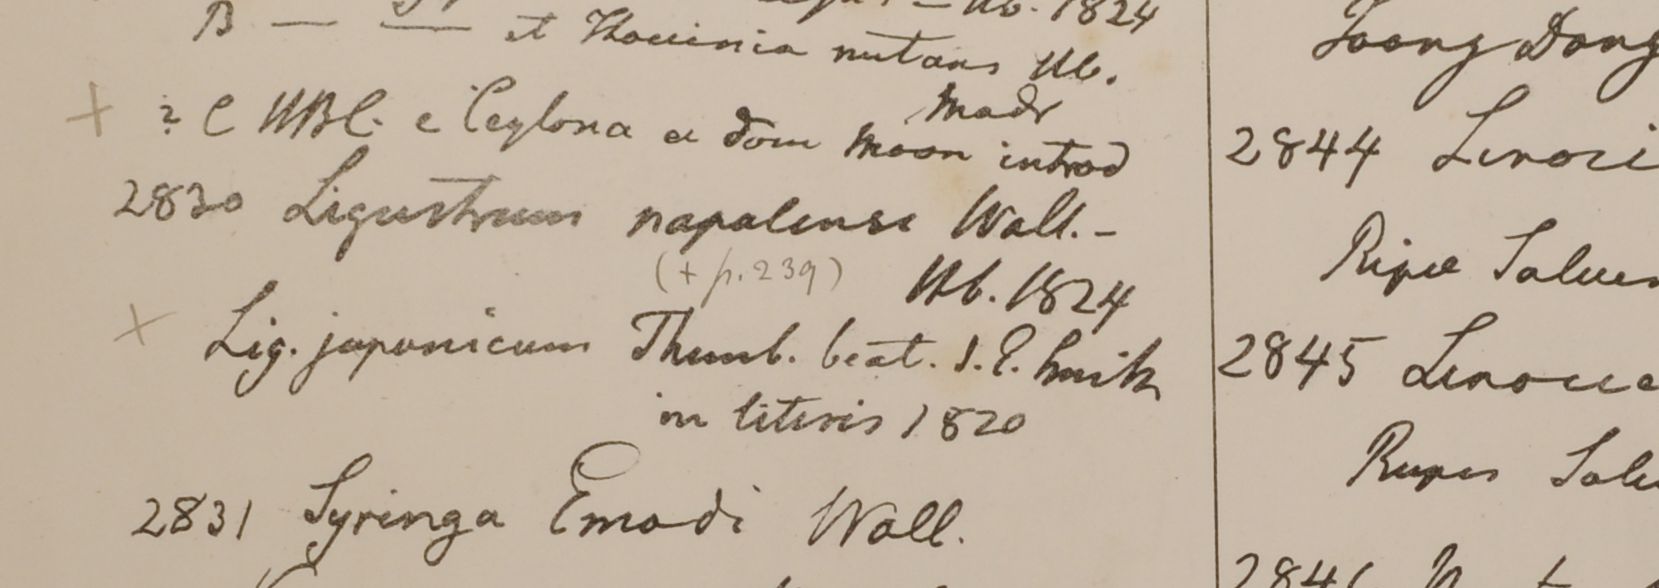 Hb. 1824
B — — et Thouinia nutans Hb.
+ ? C HBC. e Ceylona a dom Moon introd
Madr
2830 Ligustrum napalense Wall. -
(+ p. 239) Hb. 1824
+ Lig. japonicum Thunb. beat. J. E. Smith
in literis 1820
2831 Syringa Emodi Wall.
Toong Dong
2844 Linoci
Ripae Saluen
2845 Linocie
Rupes Salu
2846